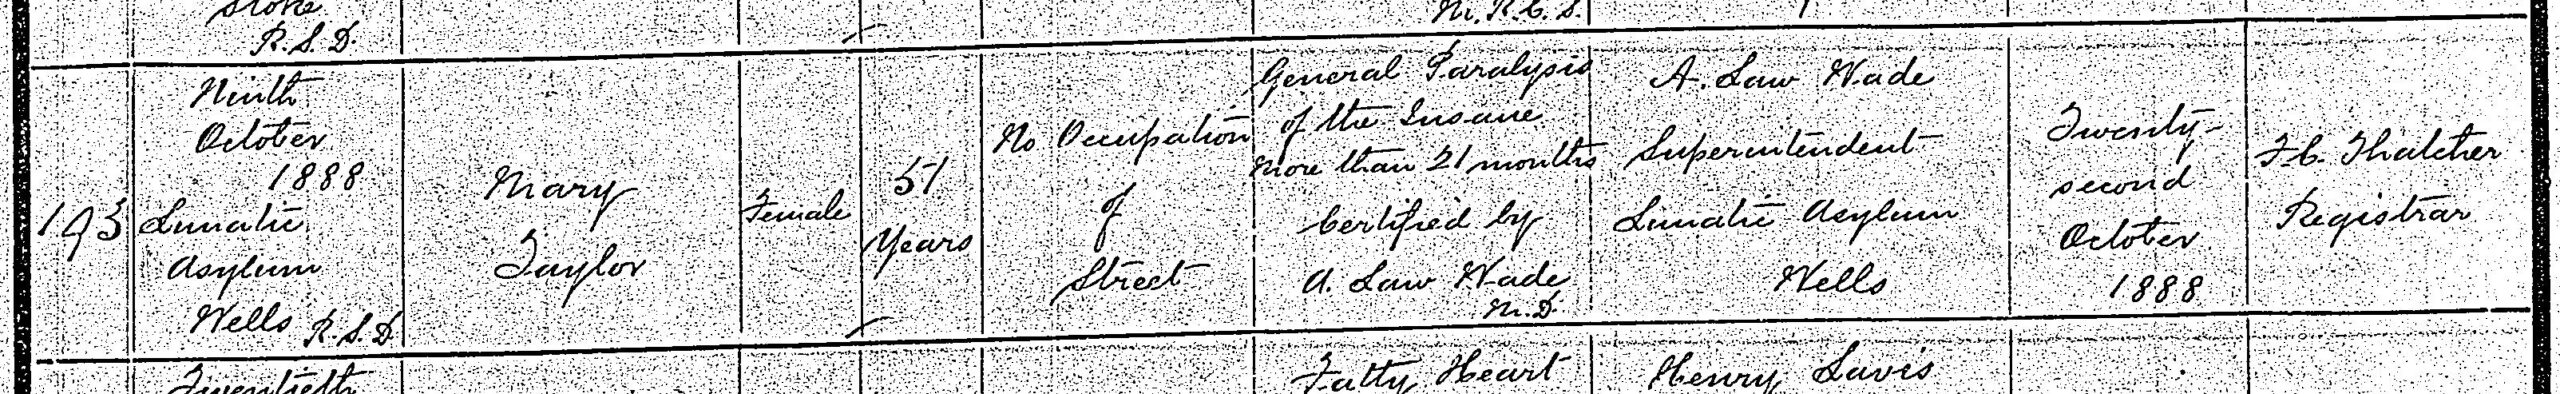 Stoke
R.S.D.
M.R.C.S.
193
Ninth
October
1888
Lunatic
Asylum
Wells R.S.D.
Mary
Taylor
Female
51
Years
No Occupation
of
Street
General Paralysis
of the Insane
more than 21 months
Certified by
A. Law Wade
M.D.
A. Law Wade
Superintendent
Lunatic Asylum
Wells
Twenty-
second
October
1888
F.C. Thatcher
Registrar
Twentieth
Fatty Heart
Henry Savis